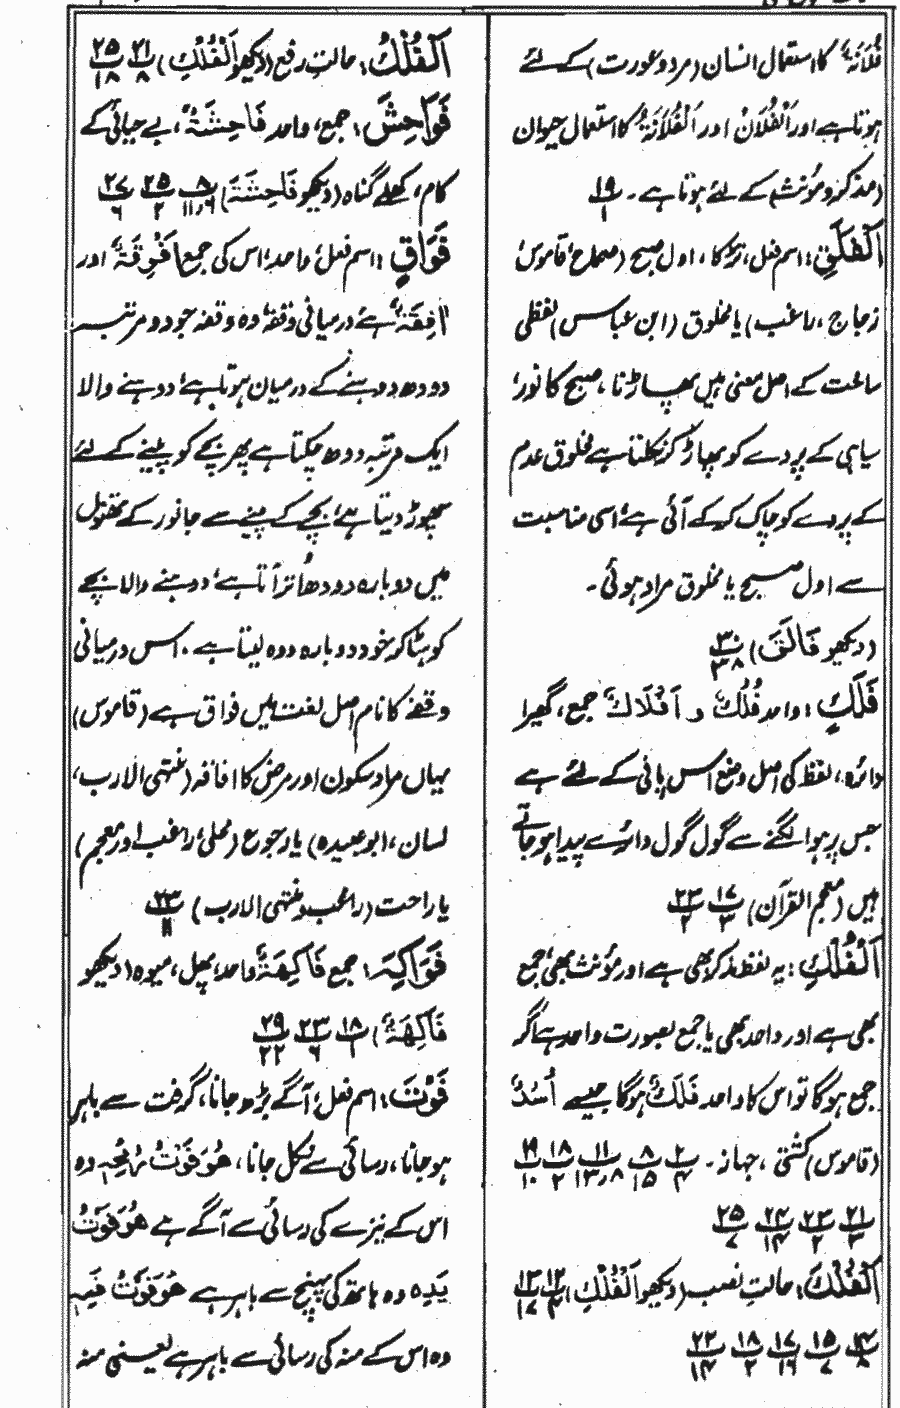 فُلَانَۃٌ کا استعمال انسان (مرد و عورت) کے لئے
ہوتا ہے اور اَلْفُلَانُ اور اَلْفُلَانَۃُ کا استعمال حیوان
(مذکر و مؤنث) کے لئے ہوتا ہے۔ ۱۹/۱
اَلْفَلَقِ: اسم فعل، تڑکا، اول صبح (صحاح، قاموس،
زجاج، راغب) یا مخلوق (ابن عباس) لفظی
ساخت کے اصل معنی ہیں پھاڑنا، صبح کا نور،
سیاہی کے پردے کو پھاڑ کر نکلتا ہے مخلوق عدم
کے پردے کو چاک کر کے آئی ہے، اسی مناسبت
سے اول صبح یا مخلوق مراد ہوئی۔
(دیکھو فَالِقَ) ۳۰/۳۸
فَلَكٍ: واحد فُلُكٌ و اَفْلَاكٌ جمع، گھیرا
دائرہ، لفظ کی اصل وضع اس پانی کے لئے ہے
جس پر ہوا لگنے سے گول گول دائرے پیدا ہو جاتے
ہیں (معجم القرآن) ۱۷/۳ ۲۳/۲
اَلْفُلْكِ: یہ لفظ مذکر بھی ہے اور مؤنث بھی، جمع
بھی ہے اور واحد بھی یا جمع بصورت واحد ہے اگر
جمع ہو گا تو اس کا واحد فَلَكٌ ہو گا جیسے اُسُدٌ
(قاموس) کشتی، جہاز۔ ۲/۴ ۸/۱۵ ۱۱/۱۳٫۸ ۱۸/۲ ۱۹/۱۰
۲۱/۳ ۲۳/۲ ۲۴/۱۴ ۲۵/۷
اَلْفُلْكَ: حالتِ نصب (دیکھو اَلْفُلْكِ) ۱۲/۴ ۱۳/۱۷
۱۴/۸ ۱۵/۷ ۱۷/۱۶ ۱۸/۲ ۲۲/۱۴
اَلْفُلْكُ: حالتِ رفع (دیکھو اَلْفُلْكِ) ۲۱/۸ ۲۵/۱۸
فَوَاحِشَ: جمع، واحد فَاحِشَۃٌ، بے حیائی کے
کام، کھلے گناہ (دیکھو فَاحِشَۃً) ۸/۱۱٫۶ ۲۵/۲ ۲۷/۶
فَوَاقٍ: اسم فعل، واحد، اس کی جمع اَفْوِقَۃٌ اور
اٰفِقَۃٌ ہے، درمیانی وقفہ، وہ وقفہ جو دو مرتبہ
دودھ دوہنے کے درمیان ہوتا ہے، دوہنے والا
ایک مرتبہ دودھ چکتا ہے پھر بچے کو پینے کے لئے
چھوڑ دیتا ہے، بچے کے پینے سے جانور کے تھنوں
میں دوبارہ دودھ اُتر آتا ہے، دوہنے والا بچے
کو ہٹا کر خود دوبارہ دوہ لیتا ہے۔ اس درمیانی
وقفے کا نام اصل لغت میں فواق ہے (قاموس)
یہاں مراد سکون اور مرض کا افاقہ (منتہی الارب،
لسان، ابو عبیدہ) یا رجوع (محلی، راغب اور معجم)
یا راحت (راغب و منتہی الارب) ۲۳/۱۱
فَوَاكِهَ: جمع فَاكِهَۃٌ واحد، پھل، میوہ (دیکھو
فَاكِهَۃٌ) ۱۸/۱ ۲۳/۶ ۲۹/۲۲
فَوْتَ: اسم فعل، آگے بڑھ جانا، گرفت سے باہر
ہو جانا، رسائی سے نکل جانا، هُوَ فَوْتُ رُمْحِهٖ وہ
اس کے نیزے کی رسائی سے آگے ہے هُوَ فَوْتُ
يَدِهٖ وہ ہاتھ کی پہنچ سے باہر ہے هُوَ فَوْتُ فَمِهٖ
وہ اس کے منہ کی رسائی سے باہر ہے یعنی منہ